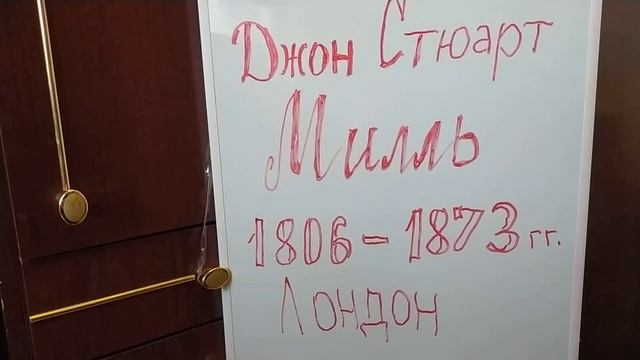 Джон Стюарт
Милль
1806-1873 гг.
Лондон